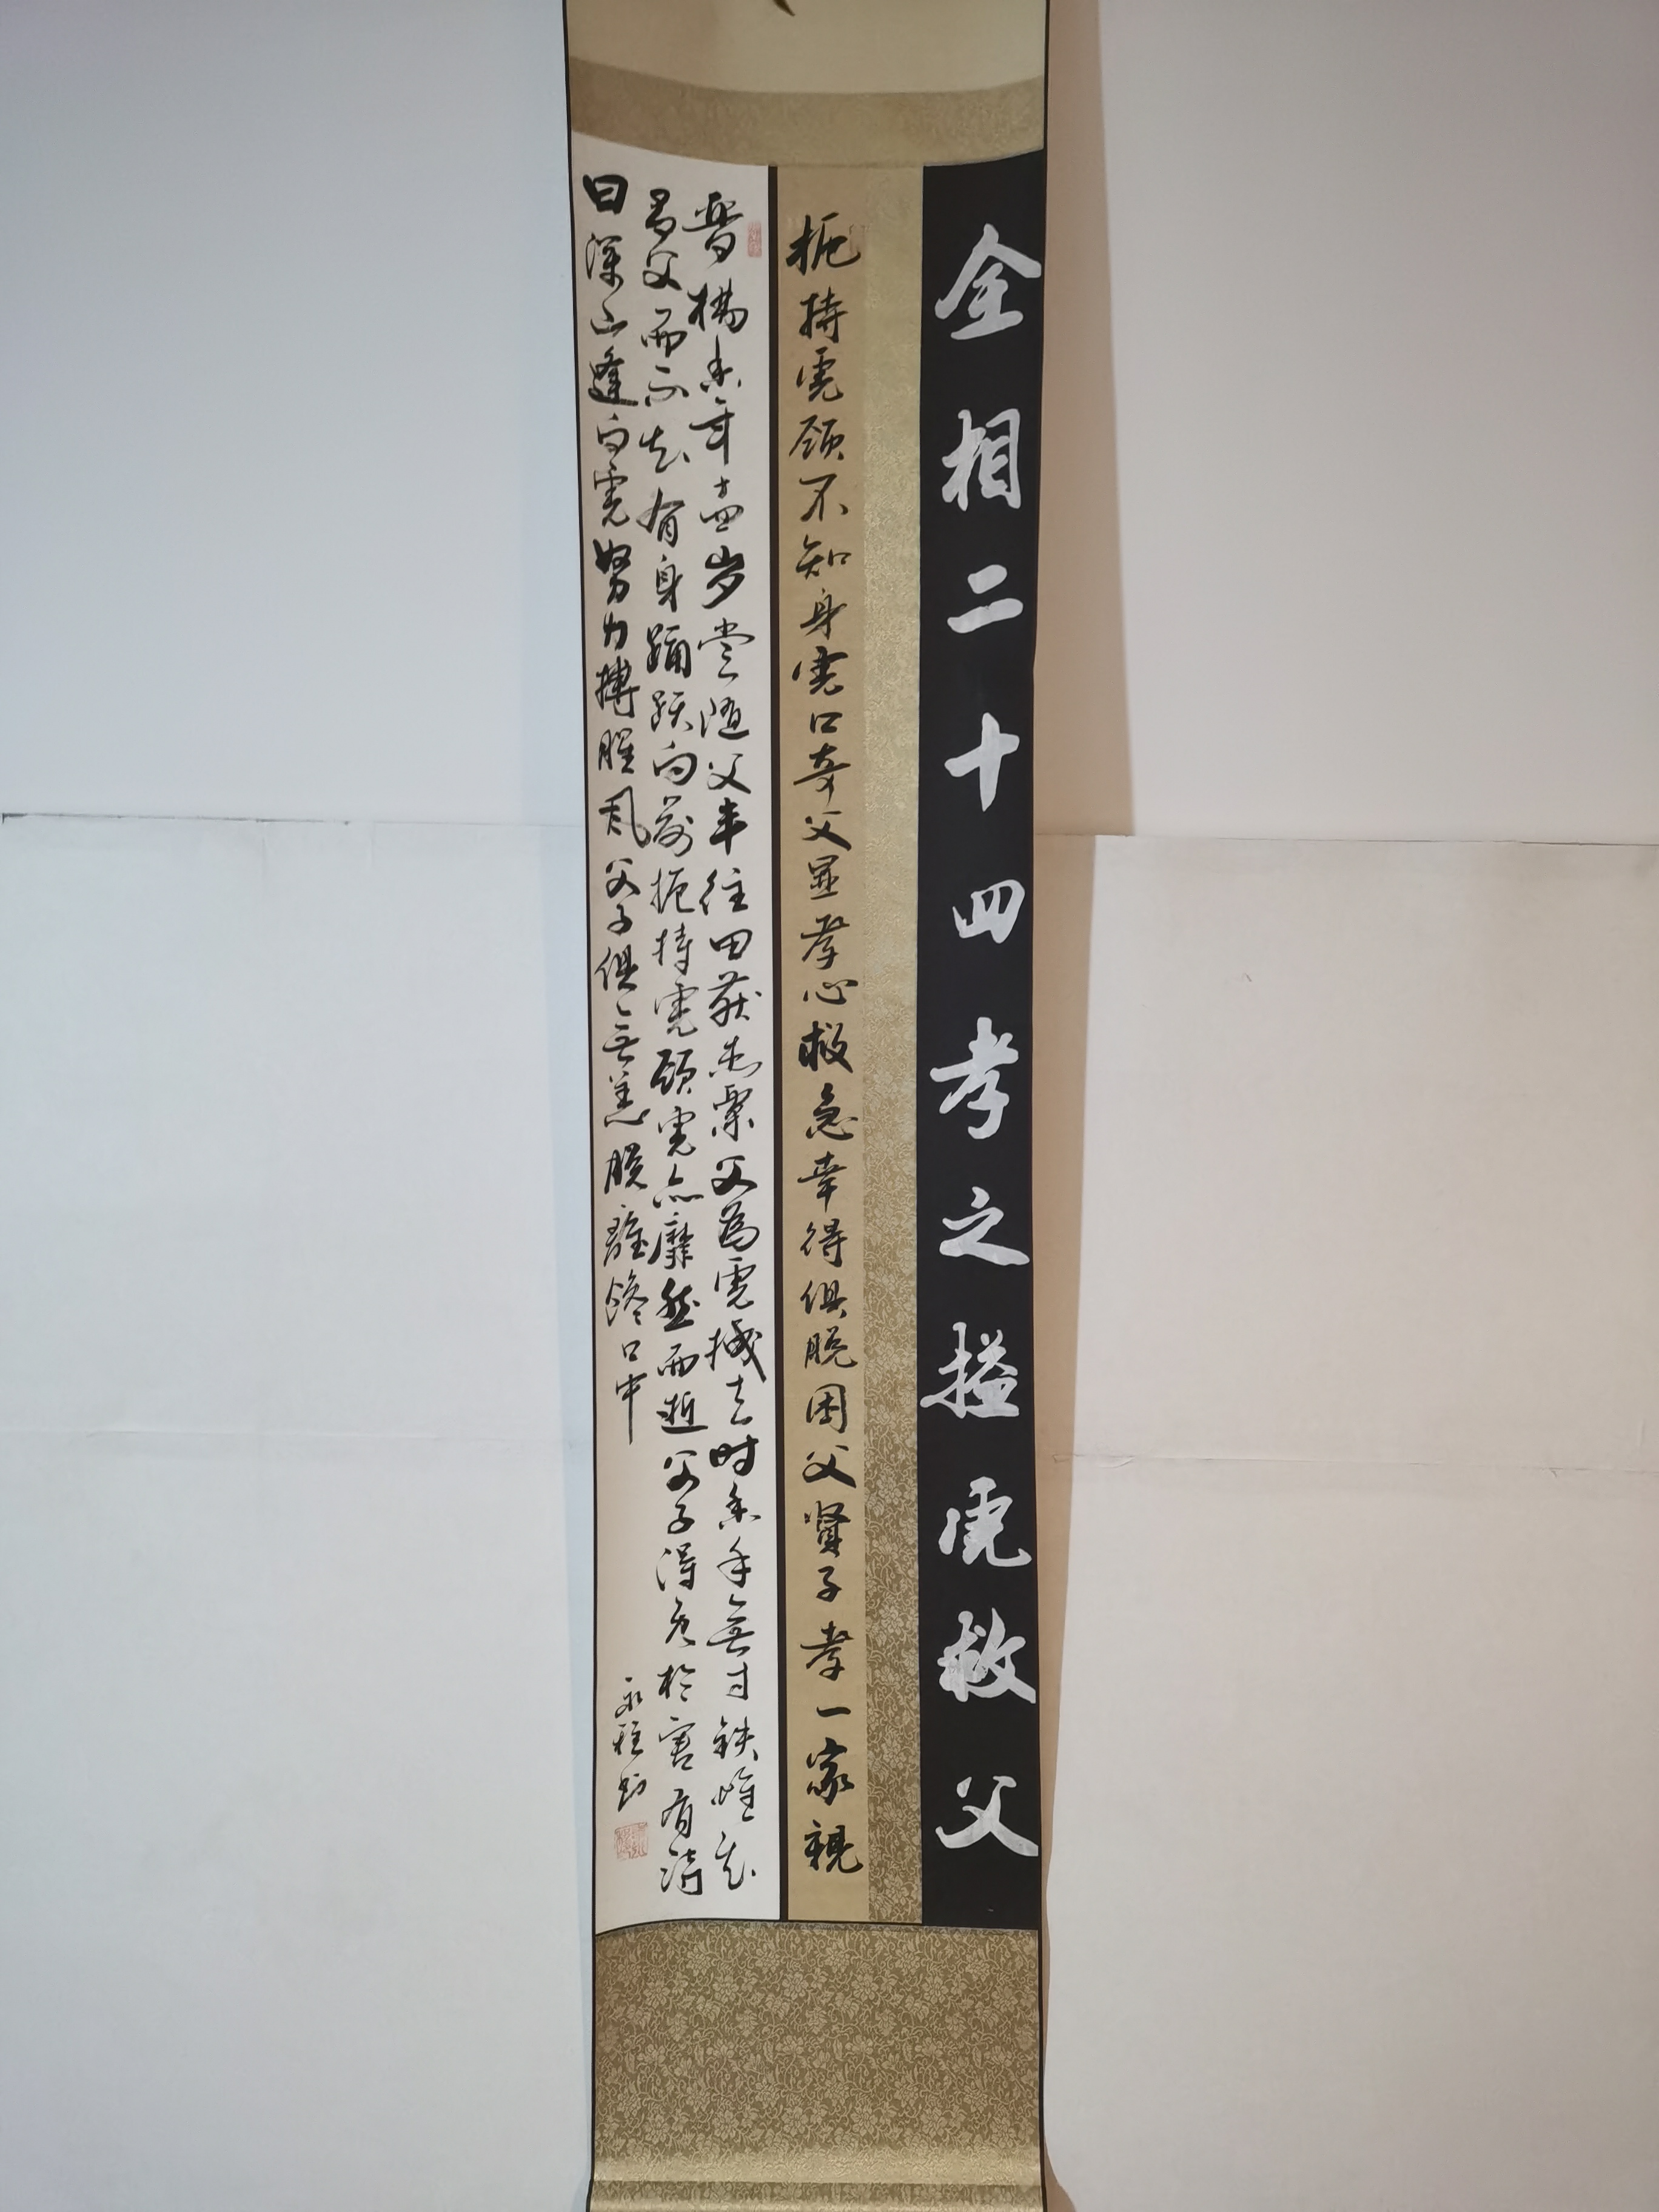 全相二十四孝之搤虎救父
扼持虎頸不知身虎口夺父显孝心救急幸得俱脱困父賢子孝一家親
晋楊香年十四岁嘗随父丰往田获杰粟父為虎拽去时香手無寸铁惟知
有父而不知有身踊跃向前扼持虎頸虎亦靡然而逝父子得免於害有詩
曰深山逢白虎努力搏腥風父子俱無恙脱離馋口中
永程书